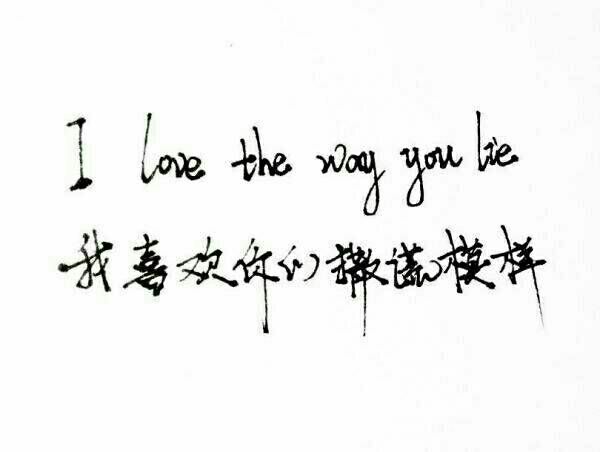 I love the way you lie
我喜欢你的撒谎模样